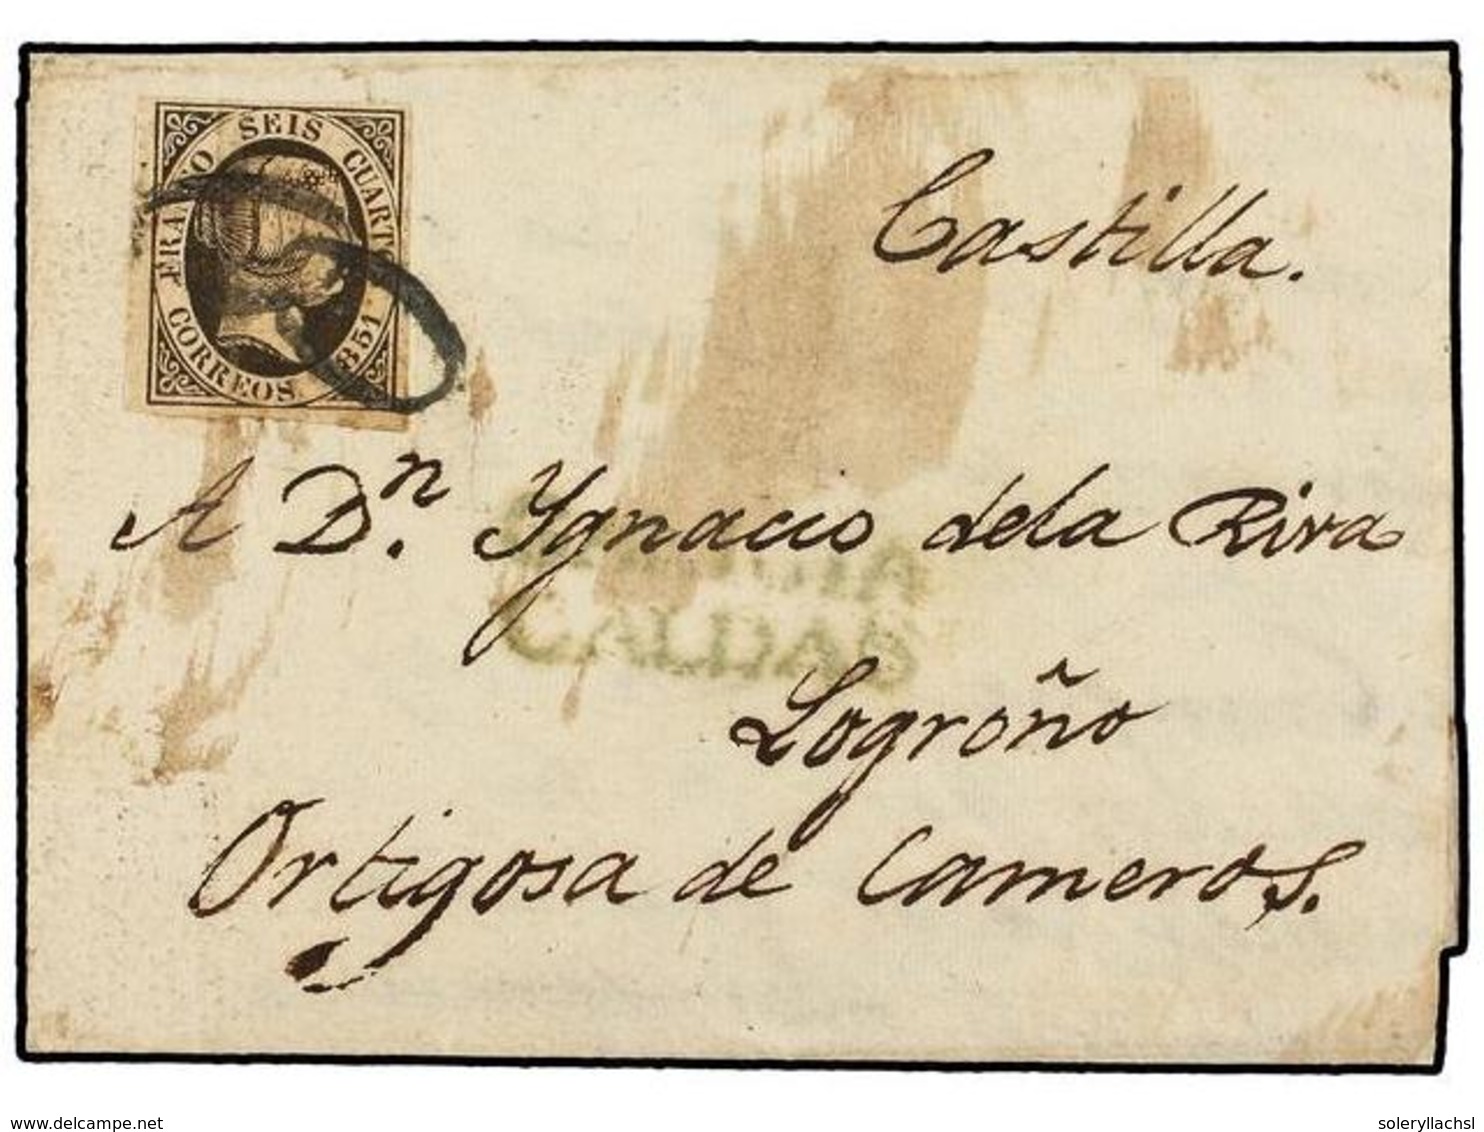 FRANCO SEIS CUARTOS
CORREOS. 1851
Castilla.
A Dn. Ygnacio dela Riva
GALICIA
Logroño
Ortigosa de Cameros.
delcampe.net
soleryllachsl